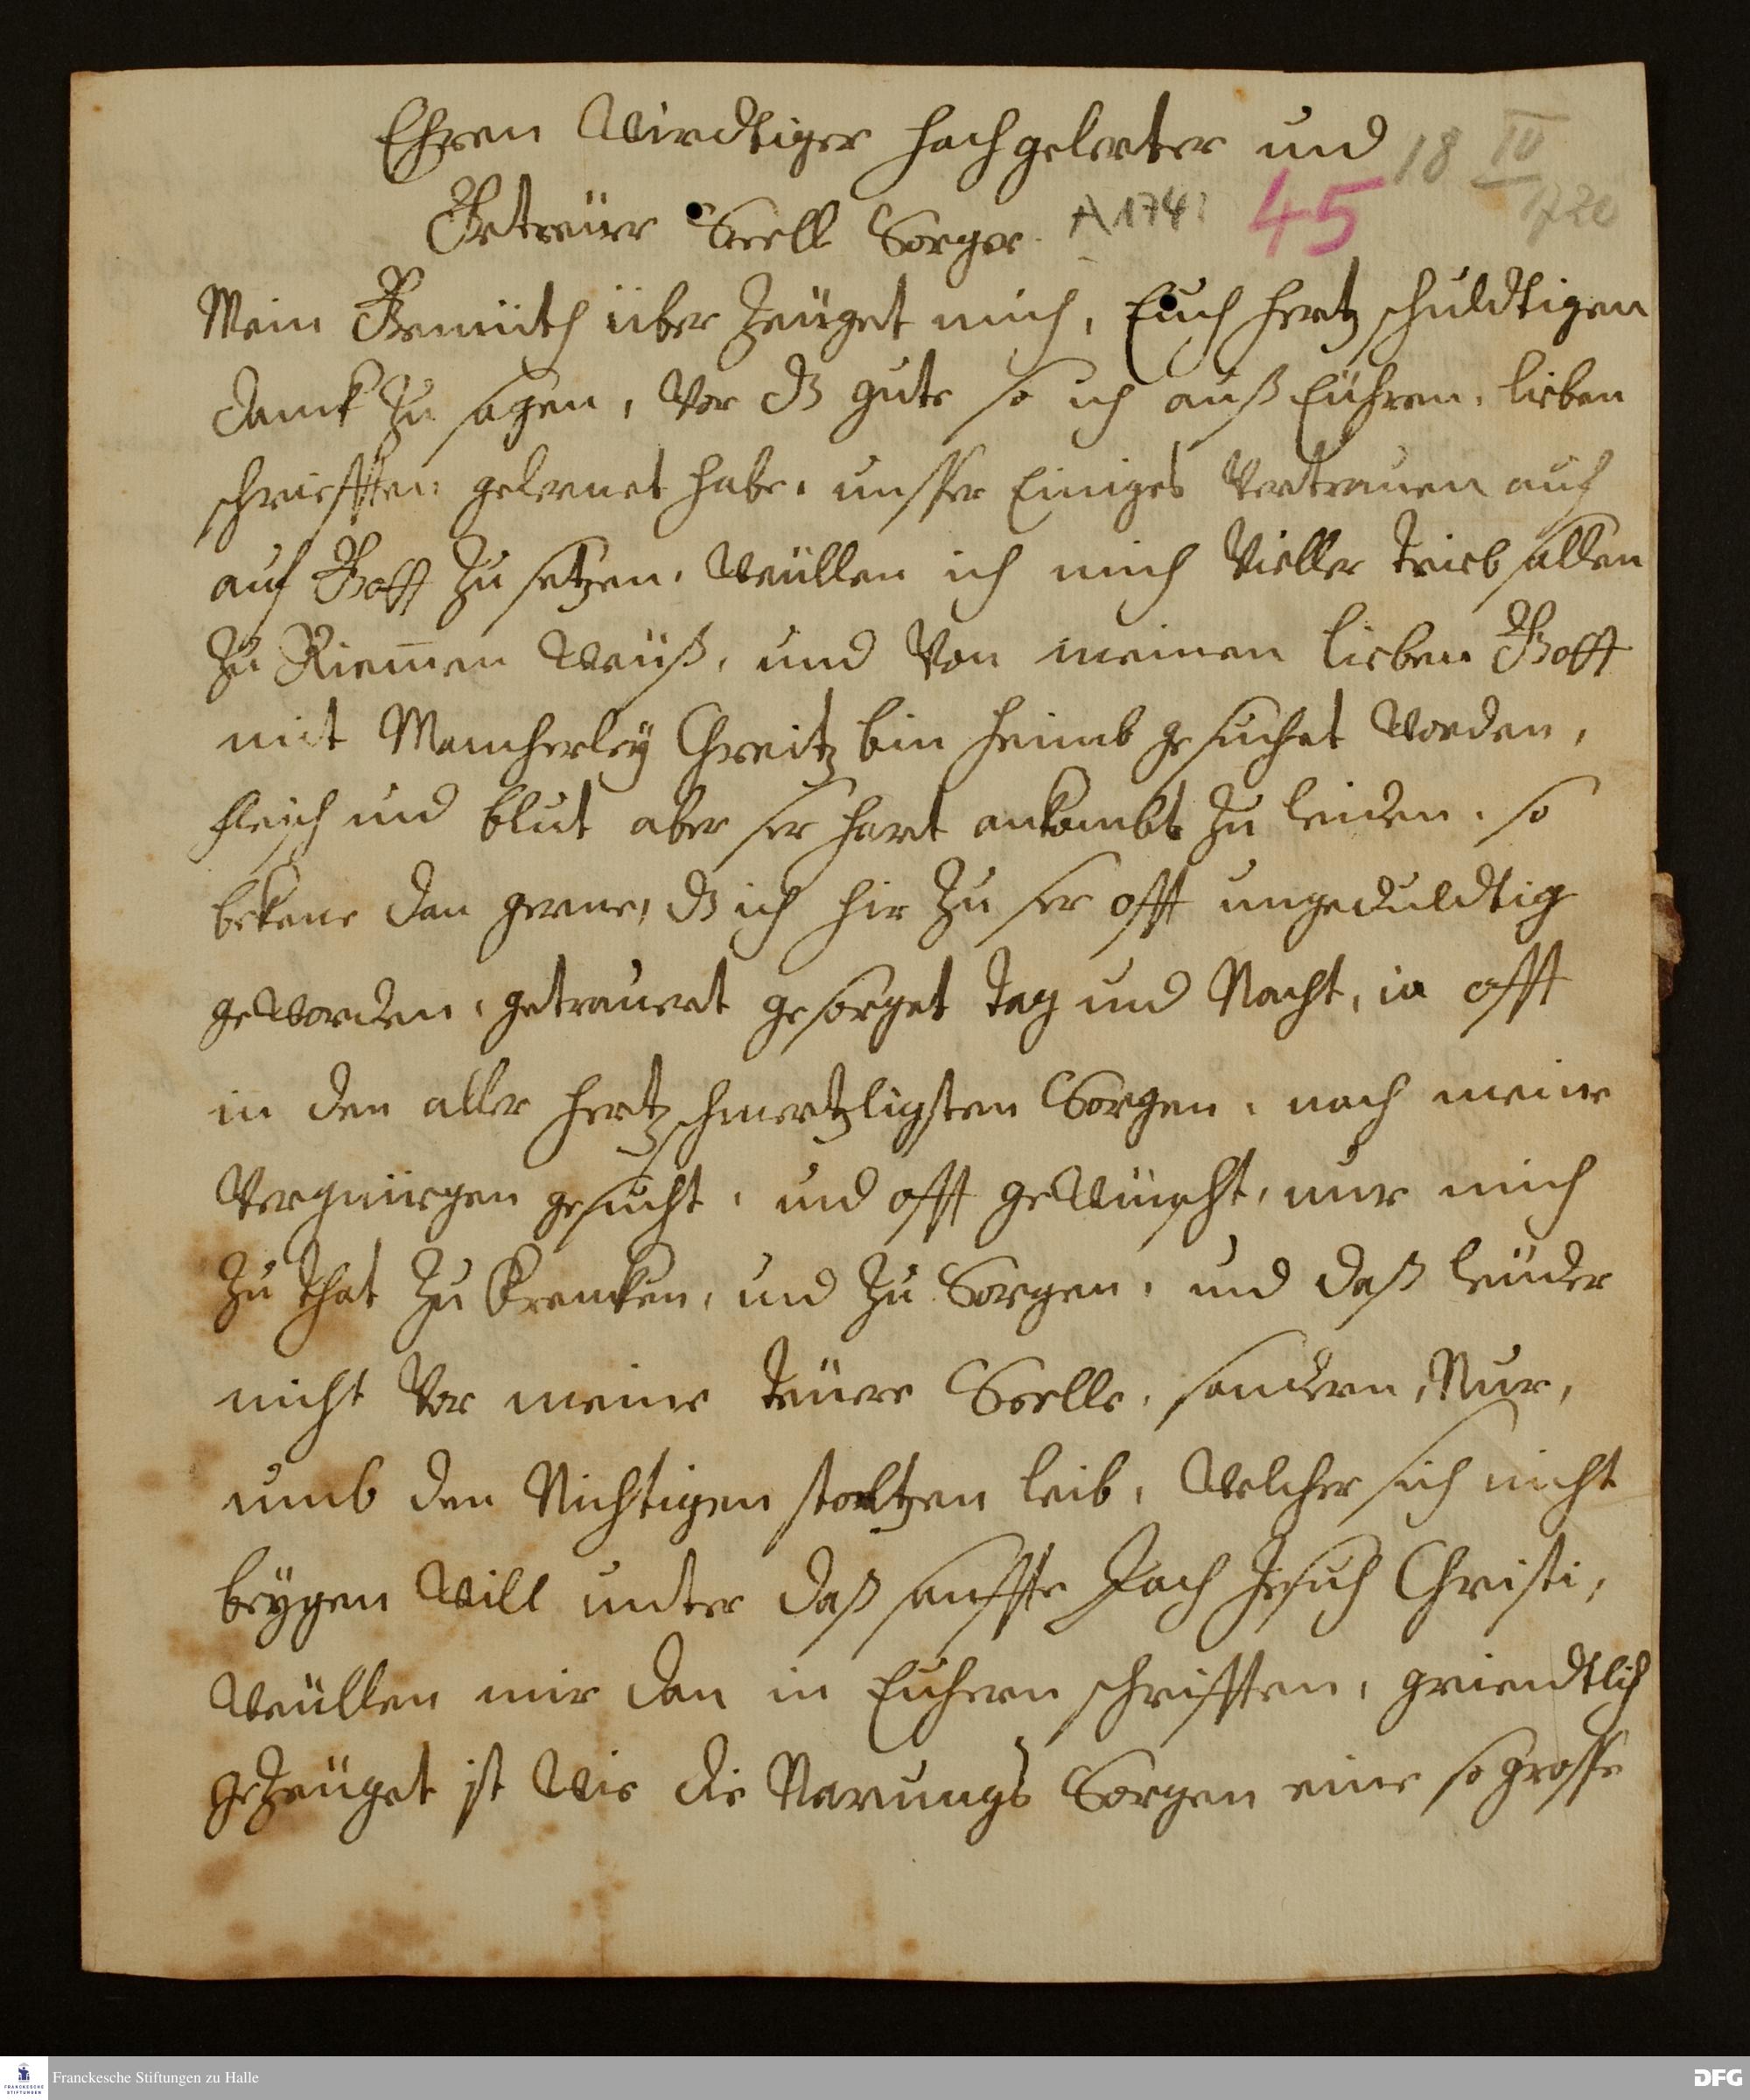 Ehren Wirdtiger Hochgelerter und
Getreüer Seell Sorger.
A 174:
45
18 IV
1720
Mein Gemüth über Zeüget mich, Euch hertz schuldtigen
danck Zu sagen, Vor dz gute so ich auß Eühren, lieben
schriefften: gelernet habe. unsser Einiges Vertrauen auf
auf Gott Zu setzen, Weüllen ich mich Vieller trieb sallen
Zu Riemen Weüß, und Von meinen lieben Gott
mit Mancherleÿ Chreitz bin heimb gesuchet Worden,
fleisch und blut aber ser hart ankombt Zu leiden. so
bekene dan gerne, dz ich hir Zu ser offt ungeduldtig
geWorden, getrauert gesorget tag und Nacht, ia offt
in den aller hertz schmertzligsten Sorgen, noch meine
Vergnüegen gesucht, und offt geWünscht, nur mich
Zu that Zu Krencken, und Zu Sorgen, und daß leüder
nicht Vor meine teüere Seelle, sondern, Nur,
umb den Nichtigen stoltzen leib, Welcher sich nicht
beÿgen Will unter daß sanffte Joch Jesuh Christi,
Weüllen mir dan in Euhern schrifften, griendtlich
geZeüget ist Wie die Narungs Sorgen eine so grosse
Franckesche Stiftungen zu Halle
FRANCKESCHE STIFTUNGEN
DFG